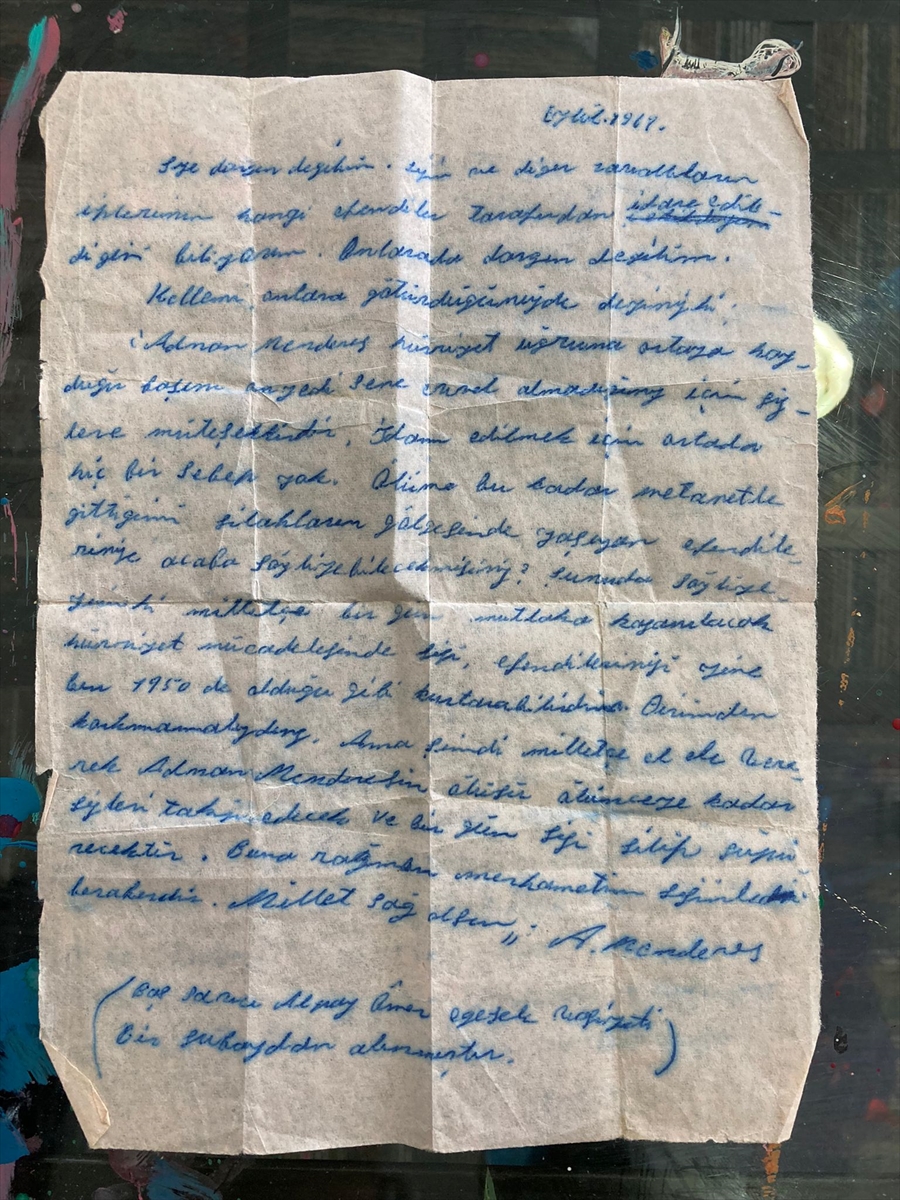 Eylül.1961.
Size dargın değilim. Sizin ve diğer zavallıların
iplerinin hangi efendiler tarafından idare edil-
diğini biliyorum. Onlarada dargın değilim.
Kellemi onlara götürdüğünüzde deyinizki;
Adnan Menderes hürriyet uğruna ortaya koy-
duğu başını onyedi sene evvel almadığınız için siz-
lere müteşekkirdir, İdam edilmek için ortada
hiç bir sebep yok. Ölüme bu kadar metanetle
gittiğimi silahların gölgesinde yaşayan efendile
rinize acaba söyliyebilecekmisiniz? Şunuda söyliye-
yimki milletçe bir gün mutlaka kazanılacak
hürriyet mücadelesinde sizi, efendilerinizi yine
ben 1950 de olduğu gibi kurtarabilirdim. Dirimden
korkmamalıydınız. Ama şimdi milletle el ele vere-
rek Adnan Menderesin ölüsü ölünceye kadar
sizleri takip edecek ve bir gün sizi silip süpü
recektir. Buna rağmen merhametim sizinle
beraberdir. Millet sağ olsun,, A. Menderes
(Baş savcı Altay Ömer Egesel
bir subaydan alınmıştır.)